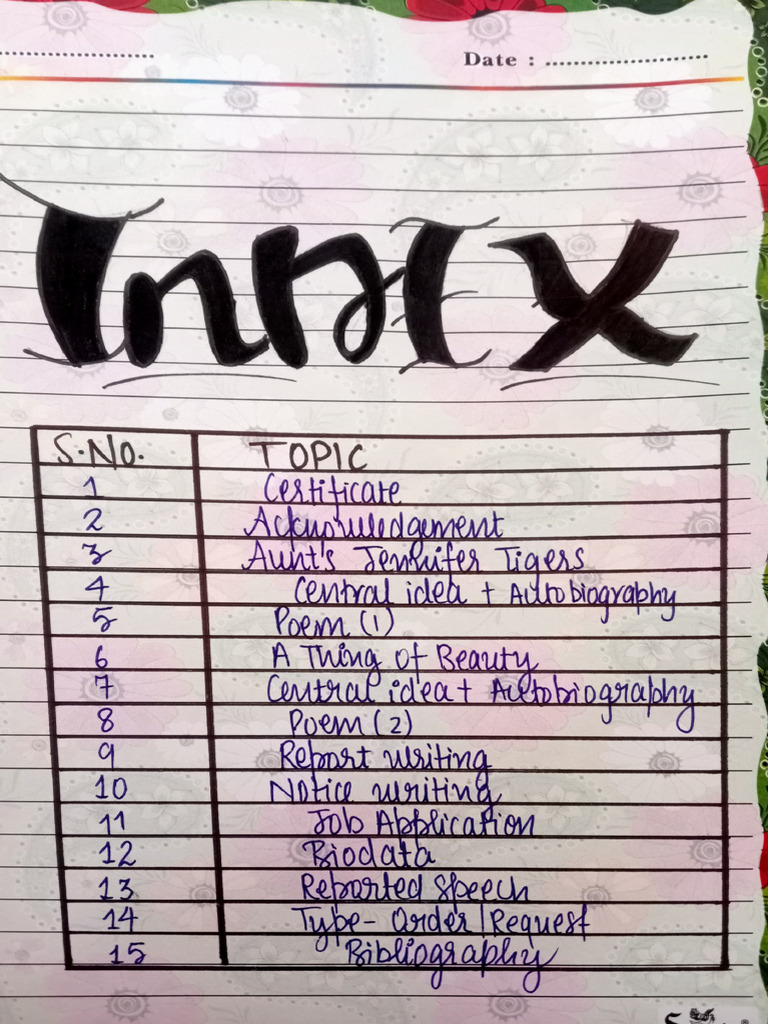 Date : ..............................
INDEX
S.No. TOPIC
1 Certificate
2 Acknowledgement
3 Aunt's Jennifer Tigers
4 Central idea + Autobiography
5 Poem (1)
6 A Thing of Beauty
7 Central idea + Autobiography
8 Poem (2)
9 Report writing
10 Notice writing
11 Job Application
12 Biodata
13 Reported Speech
14 Type- Order/Request
15 Bibliography